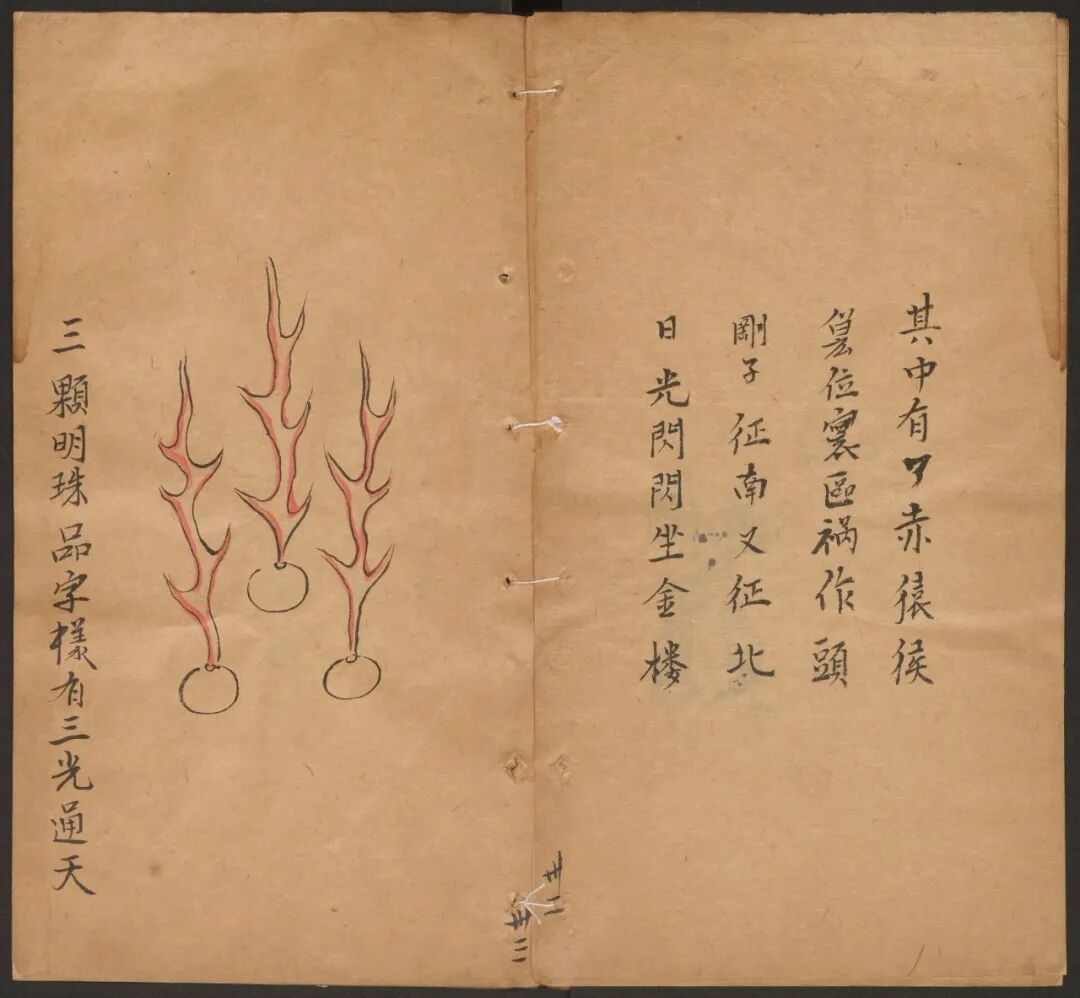 其中有
赤猿猴
位裏區禍作頭
剛子征南又征北
日光閃閃坐金楼
卅二
卅三
三顆明珠品字樣有三光通天